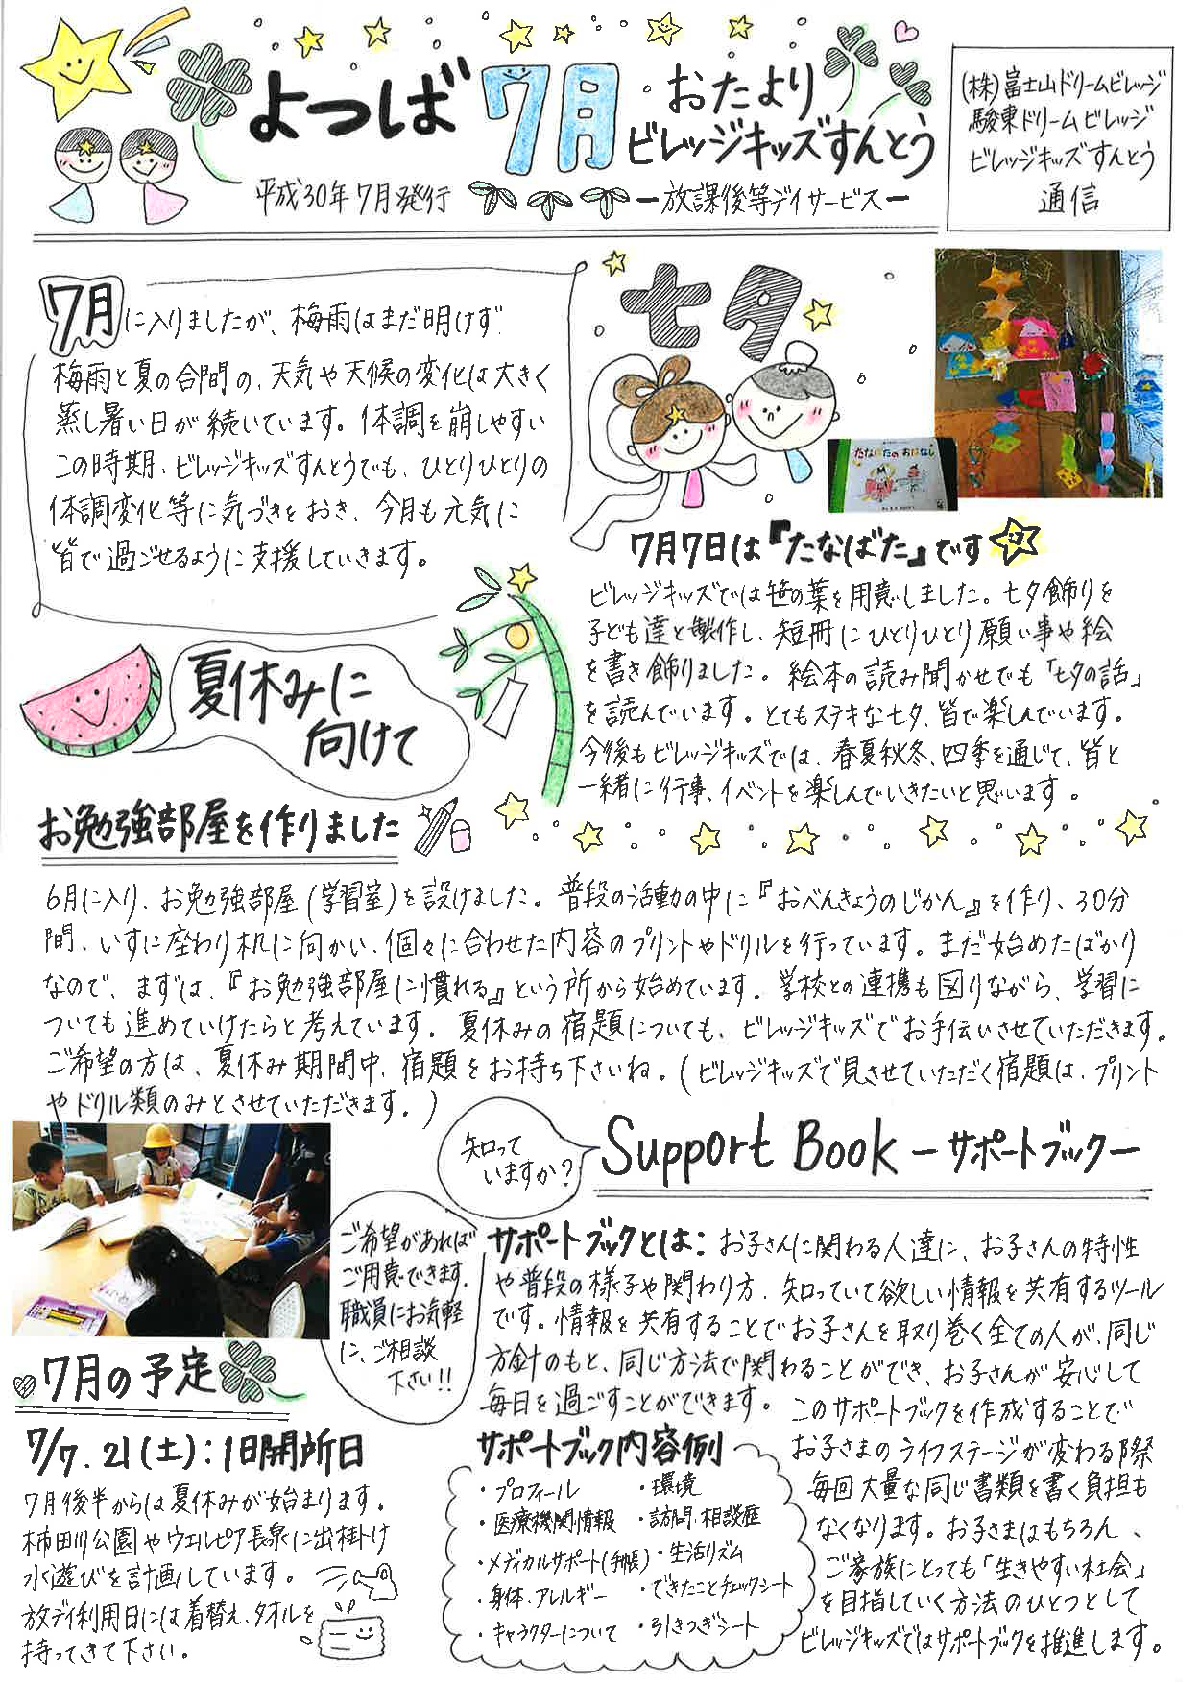 よつば 7月 おたより
ビレッジキッズすんとう
平成30年7月発行
ー放課後等デイサービスー
(株)富士山ドリームビレッジ
駿東ドリームビレッジ
ビレッジキッズすんとう
通信
7月に入りましたが、梅雨はまだ明けず
梅雨と夏の合間の、天気や天候の変化は大きく
蒸し暑い日が続いています。体調を崩しやすい
この時期、ビレッジキッズすんとうでも、ひとりひとりの
体調変化等に気づきをおき、今月も元気に
皆で過ごせるように支援していきます。
七夕
たなばたのおはなし
7月7日は『たなばた』です
ビレッジキッズでは笹の葉を用意しました。七夕飾りを
子ども達と製作し、短冊にひとりひとり願い事や絵
を書き飾りました。絵本の読み聞かせでも「七夕の話」
を読んでいます。とてもステキな七夕、皆で楽しんでいます。
今後もビレッジキッズでは、春夏秋冬、四季を通じて、皆と
一緒に行事、イベントを楽しんでいきたいと思います。
夏休みに
向けて
お勉強部屋を作りました
6月に入り、お勉強部屋(学習室)を設けました。普段の活動の中に『おべんきょうのじかん』を作り、30分
間、いすに座わり机に向かい、個々に合わせた内容のプリントやドリルを行っています。まだ始めたばかり
なので、まずは、『お勉強部屋に慣れる』という所から始めています。学校との連携も図りながら、学習に
ついても進めていけたらと考えています。夏休みの宿題についても、ビレッジキッズでお手伝いさせていただきます。
ご希望の方は、夏休み期間中、宿題をお持ち下さいね。(ビレッジキッズで見させていただく宿題は、プリント
やドリル類のみとさせていただきます。)
知って
いますか?
Support Book ーサポートブックー
ご希望があれば
ご用意できます。
職員にお気軽
に、ご相談
下さい!!
サポートブックとは: お子さんに関わる人達に、お子さんの特性
や普段の様子や関わり方、知っていて欲しい情報を共有するツール
です。情報を共有することでお子さんを取り巻く全ての人が、同じ
方針のもと、同じ方法で関わることができ、お子さんが安心して
毎日を過ごすことができます。
このサポートブックを作成することで
お子さまのライフステージが変わる際
毎回大量な同じ書類を書く負担も
なくなります。お子さまはもちろん、
ご家族にとっても「生きやすい社会」
を目指していく方法のひとつとして
ビレッジキッズではサポートブックを推進します。
サポートブック内容例
・プロフィール ・環境
・医療機関情報 ・訪問・相談歴
・メディカルサポート(手帳) ・生活リズム
・身体・アレルギー ・できたことチェックシート
・キャラクターについて ・引きつぎシート
7月の予定
7/7.21(土):1日開所日
7月後半からは夏休みが始まります。
柿田川公園やウエルピア長泉に出掛け
水遊びを計画しています。
放デイ利用日には着替え、タオルを
持ってきて下さい。